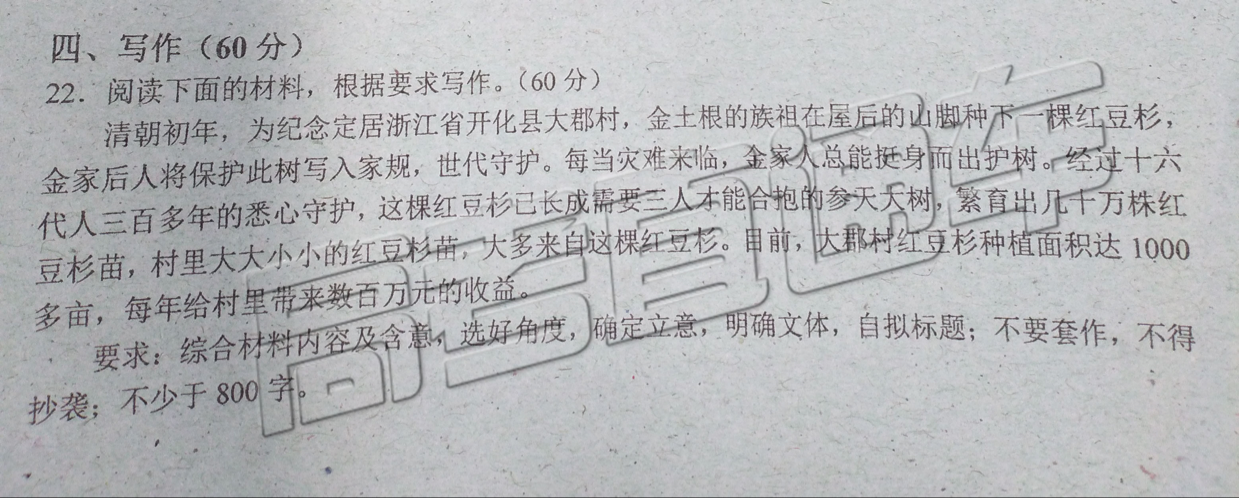 四、写作（60 分）
22．阅读下面的材料，根据要求写作。（60 分）
清朝初年，为纪念定居浙江省开化县大郡村，金土根的族祖在屋后的山脚种下一棵红豆杉，
金家后人将保护此树写入家规，世代守护。每当灾难来临，金家人总能挺身而出护树。经过十六
代人三百多年的悉心守护，这棵红豆杉已长成需要三人才能合抱的参天大树，繁育出几十万株红
豆杉苗，村里大大小小的红豆杉苗，大多来自这棵红豆杉。目前，大郡村红豆杉种植面积达 1000
多亩，每年给村里带来数百万元的收益。
要求：综合材料内容及含意，选好角度，确定立意，明确文体，自拟标题；不要套作，不得
抄袭；不少于 800 字。
高考直通车